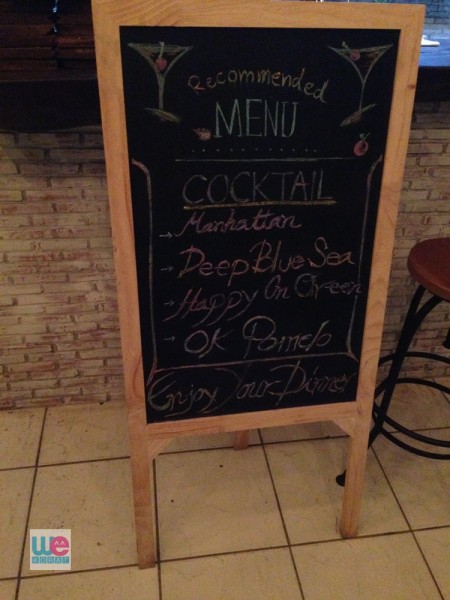 Recommended
MENU
COCKTAIL
→ Manhattan
→ Deep Blue Sea
→ Happy On Green
→ OK Pomelo
Enjoy Your Dinner
we
KORAT